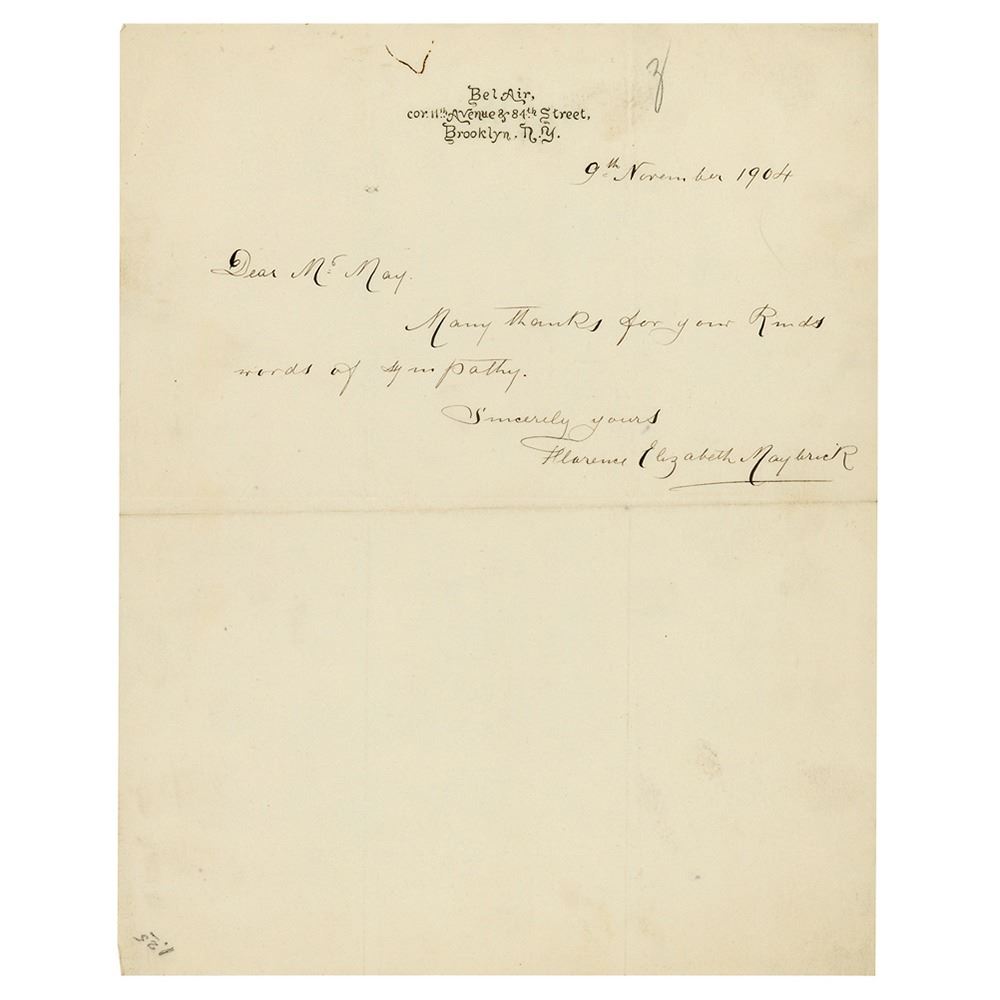 Bel Air,
cor. 11th Avenue & 84th Street,
Brooklyn, N.Y.
9th November 1904
Dear Mr May.
Many thanks for your kinds
words of sympathy.
Sincerely yours
Florence Elizabeth Maybrick